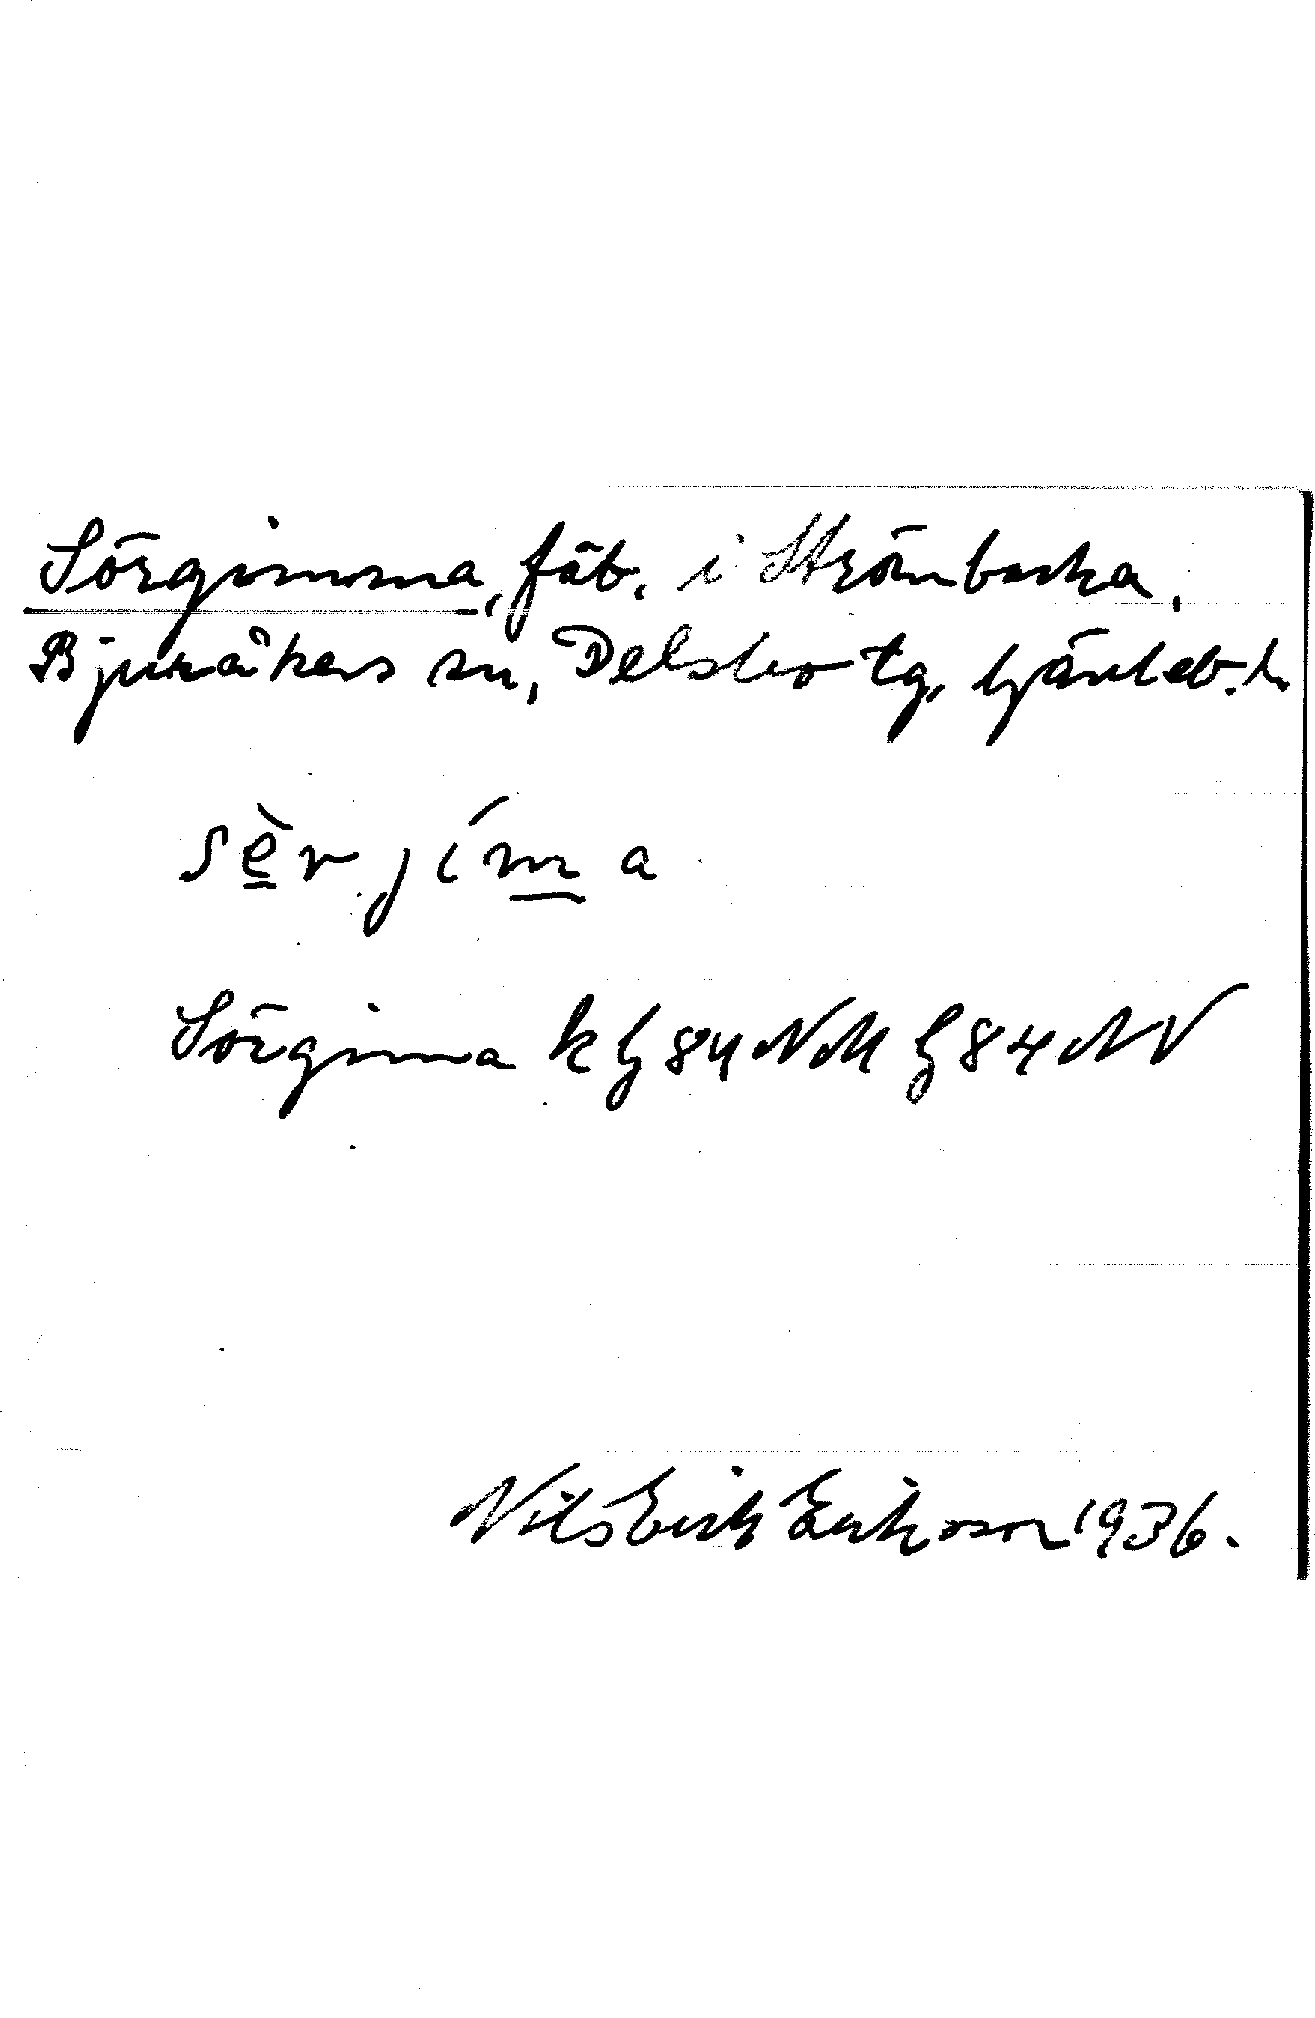 Sörgimma, fäb. i Strömbacka,
Bjuråkers sn, Delsbo tg, Gävleb. l.
sèr jíma
Sörgima k G 84 NM G 84 NV
Nils Erik Erikson 1936.